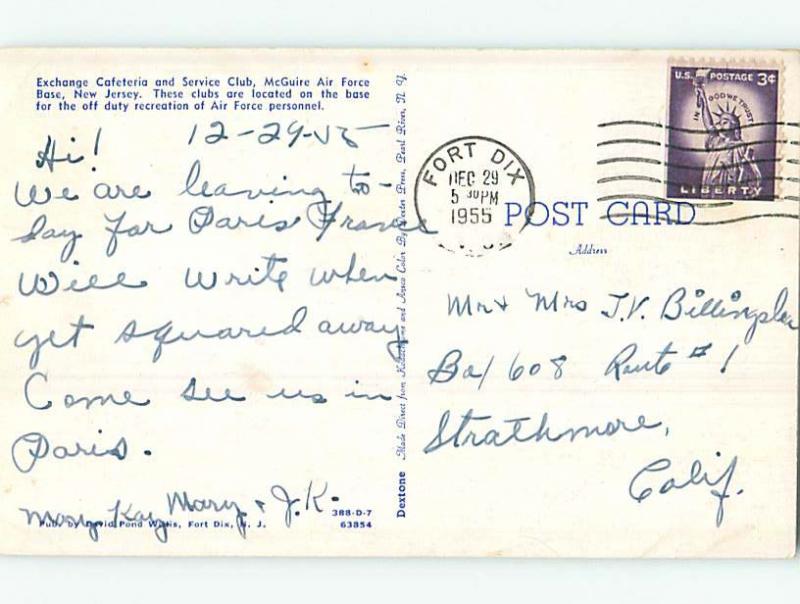 Exchange Cafeteria and Service Club, McGuire Air Force
Base, New Jersey. These clubs are located on the base
for the off duty recreation of Air Force personnel.
12-29-55
Hi!
We are leaving to-
day for Paris France
Will write when
get squared away
Come see us in
Paris.
Mary Kay Mary + J.K.
Pub. by David Pond Willis, Fort Dix, N. J.
388-D-7
63854
Dextone
Made Direct from Kodachrome and Ansco Color By Dexter Press, Pearl River, N. Y.
FORT DIX
DEC 29
5 30 PM
1955
N. J.
U.S. POSTAGE 3¢
IN GOD WE TRUST
LIBERTY
POST CARD
Address
Mr + Mrs J.V. Billingsley
Box 608 Route #1
Strathmore,
Calif.